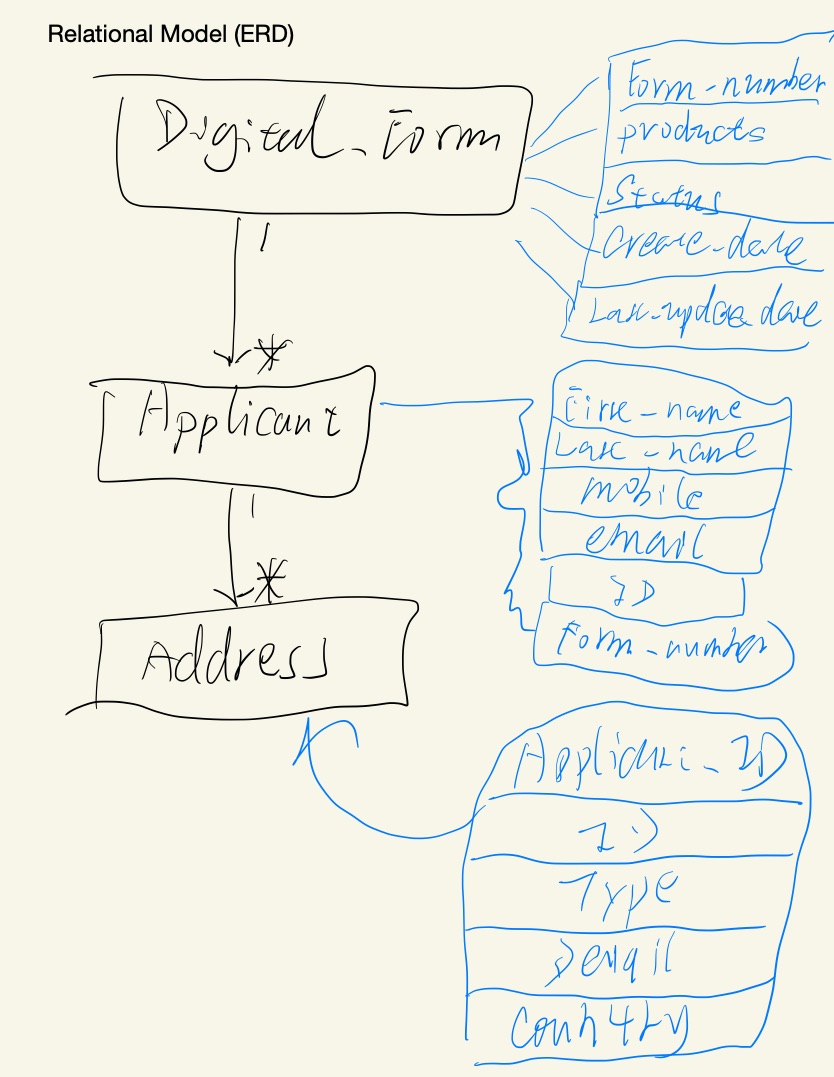 Relational Model (ERD)
Digital_Form
Form-number
products
Status
Create-date
Last-update date
1
*
Applicant
First-name
Last-name
mobile
email
ID
Form-number
1
*
Address
Applicant-ID
ID
Type
Detail
Country